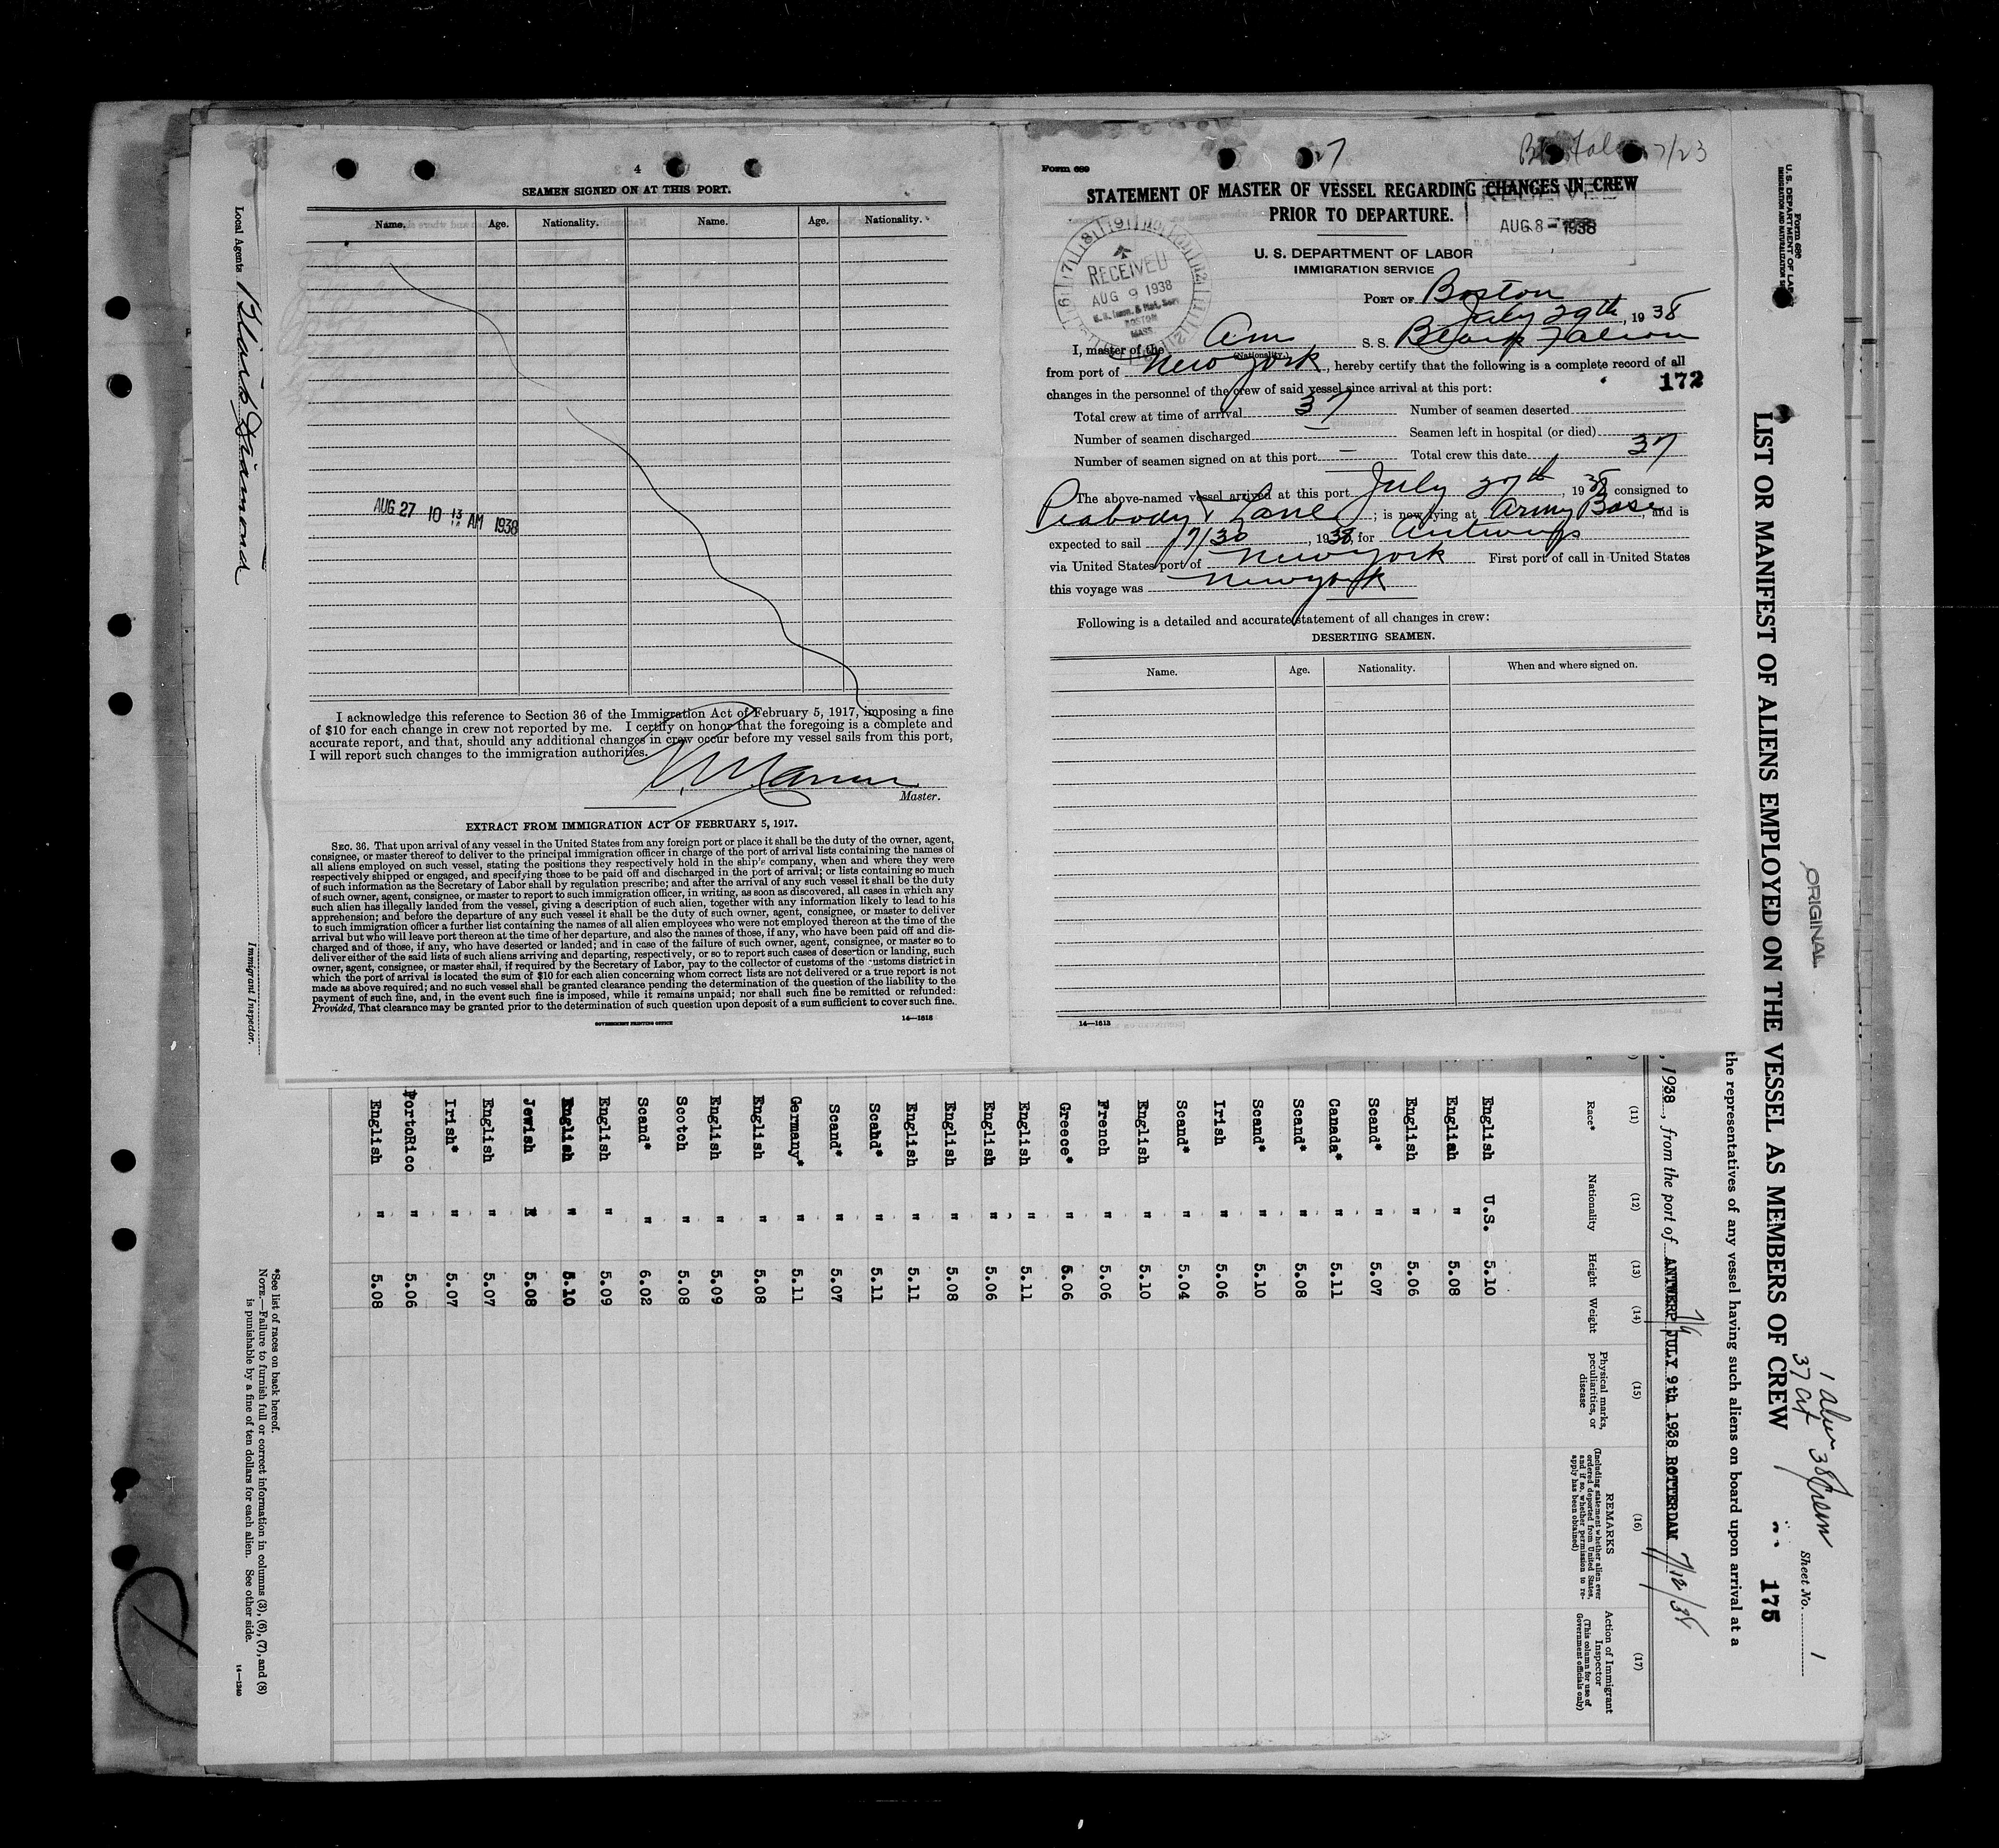 4
SEAMEN SIGNED ON AT THIS PORT.
Name. Age. Nationality. Name. Age. Nationality.
AUG 27 10 13 AM 1938
I acknowledge this reference to Section 36 of the Immigration Act of February 5, 1917, imposing a fine
of $10 for each change in crew not reported by me. I certify on honor that the foregoing is a complete and
accurate report, and that, should any additional changes in crew occur before my vessel sails from this port,
I will report such changes to the immigration authorities.
Master.
EXTRACT FROM IMMIGRATION ACT OF FEBRUARY 5, 1917.
SEC. 36. That upon arrival of any vessel in the United States from any foreign port or place it shall be the duty of the owner, agent,
consignee, or master thereof to deliver to the principal immigration officer in charge of the port of arrival lists containing the names of
all aliens employed on such vessel, stating the positions they respectively hold in the ship's company, when and where they were
respectively shipped or engaged, and specifying those to be paid off and discharged in the port of arrival; or lists containing so much
of such information as the Secretary of Labor shall by regulation prescribe; and after the arrival of any such vessel it shall be the duty
of such owner, agent, consignee, or master to report to such immigration officer, in writing, as soon as discovered, all cases in which any
such alien has illegally landed from the vessel, giving a description of such alien, together with any information likely to lead to his
apprehension; and before the departure of any such vessel it shall be the duty of such owner, agent, consignee, or master to deliver
to such immigration officer a further list containing the names of all alien employees who were not employed thereon at the time of the
arrival but who will leave port thereon at the time of her departure, and also the names of those, if any, who have been paid off and dis-
charged and of those, if any, who have deserted or landed; and in case of the failure of such owner, agent, consignee, or master so to
deliver either of the said lists of such aliens arriving and departing, respectively, or so to report such cases of desertion or landing, such
owner, agent, consignee, or master shall, if required by the Secretary of Labor, pay to the collector of customs of the customs district in
which the port of arrival is located the sum of $10 for each alien concerning whom correct lists are not delivered or a true report is not
made as above required; and no such vessel shall be granted clearance pending the determination of the question of the liability to the
payment of such fine, and, in the event such fine is imposed, while it remains unpaid; nor shall such fine be remitted or refunded:
Provided, That clearance may be granted prior to the determination of such question upon deposit of a sum sufficient to cover such fine.
GOVERNMENT PRINTING OFFICE 14—1613
Form 689
7/23
STATEMENT OF MASTER OF VESSEL REGARDING CHANGES IN CREW
PRIOR TO DEPARTURE.
RECEIVED
AUG 8 - 1938
U. S. DEPARTMENT OF LABOR
IMMIGRATION SERVICE
RECEIVED
AUG 9 1938
U. S. Imm. & Nat. Serv.
BOSTON
MASS.
PORT OF Boston
July 29th, 1938
I, master of the Am (Nationality.) S. S. Black Falcon
from port of New York, hereby certify that the following is a complete record of all
172
changes in the personnel of the crew of said vessel since arrival at this port:
Total crew at time of arrival 37 Number of seamen deserted
Number of seamen discharged — Seamen left in hospital (or died)
Number of seamen signed on at this port — Total crew this date 37
The above-named vessel arrived at this port July 27th, 1938 consigned to
Peabody & Lane; is now lying at Army Base, and is
expected to sail 7/30, 1938, for Antwerp
via United States port of New York First port of call in United States
this voyage was New York
Following is a detailed and accurate statement of all changes in crew:
DESERTING SEAMEN.
Name. Age. Nationality. When and where signed on.
14—1613
Form 680
U. S. DEPARTMENT OF LABOR
IMMIGRATION AND NATURALIZATION
ORIGINAL
37 cit
Sheet No. 1
LIST OR MANIFEST OF ALIENS EMPLOYED ON THE VESSEL AS MEMBERS OF CREW 175
the representatives of any vessel having such aliens on board upon arrival at a
, 1938, from the port of ANTWERP JULY 9th 1938 ROTTERDAM 7/12/38
(11) (12) (13) (14) (15) (16) (17)
Race* Nationality Height Weight
Physical marks, peculiarities, or disease
REMARKS
(Including statement whether alien ever ordered deported from United States, and if so, whether permission to reapply has been obtained)
Action of Immigrant Inspector
(This column for use of Government officials only)
English U.S. 5.10
English " 5.08
English " 5.06
Scand* " 5.07
Canada* " 5.11
Scand* " 5.08
Scand* " 5.10
Irish " 5.06
Scand* " 5.04
English " 5.10
French " 5.06
Greece* " 5.06
English " 5.11
English " 5.06
English " 5.08
English " 5.11
Scand* " 5.11
Scand* " 5.07
Germany* " 5.11
English " 5.08
English " 5.09
Scotch " 5.08
Scand* " 6.02
English " 5.09
English " 5.10
Jewish " 5.08
English " 5.07
Irish* " 5.07
PortoRico " 5.06
English " 5.08
*See list of races on back hereof.
NOTE.—Failure to furnish full or correct information in columns (3), (6), (7), and (8)
is punishable by a fine of ten dollars for each alien. See other side.
14—1240
Local Agents Black Diamond
Immigrant Inspector.